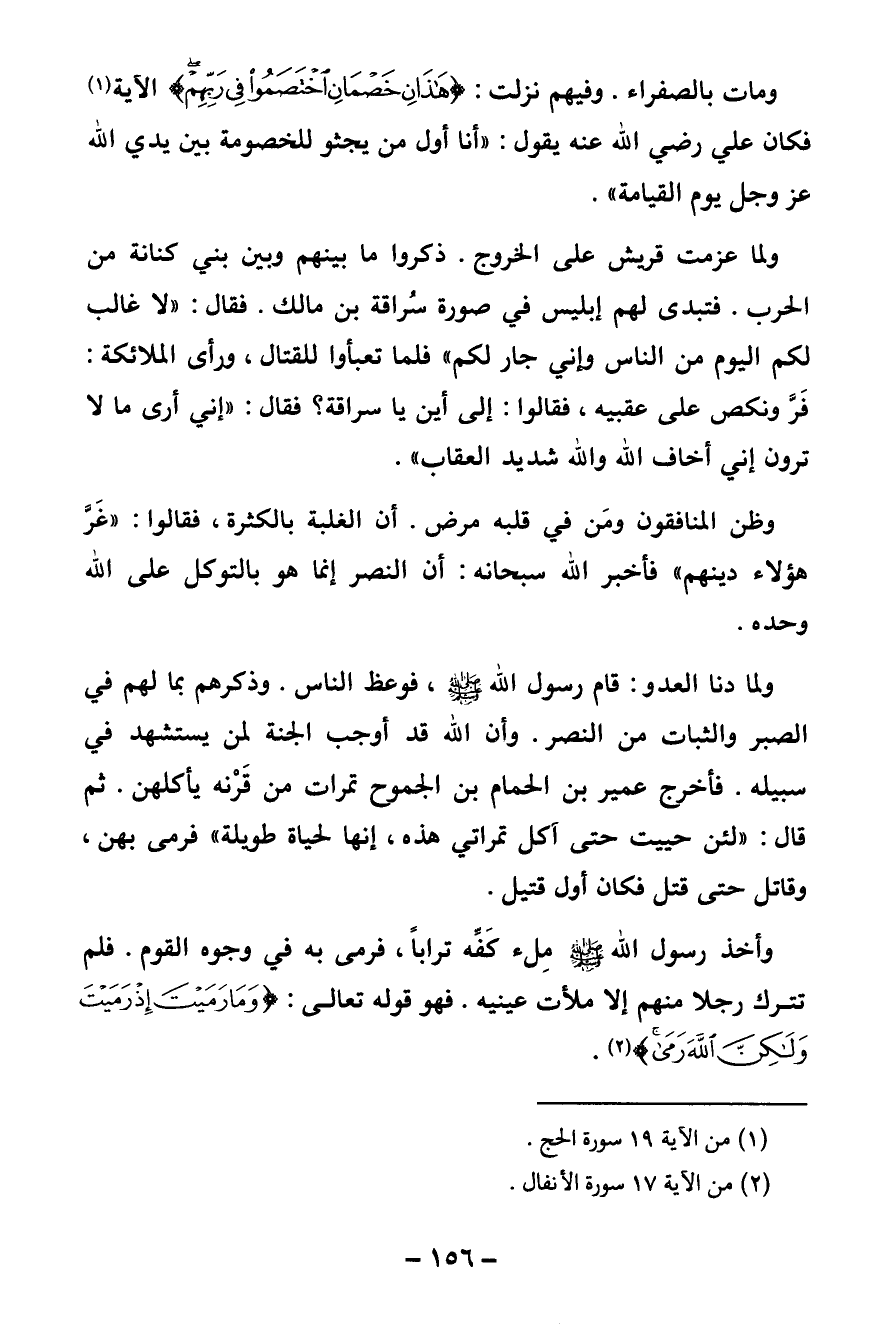 ومات بالصفراء . وفيهم نزلت : ﴿هَٰذَانِ خَصْمَانِ ٱخْتَصَمُوا۟ فِى رَبِّهِمْ ۖ﴾ الآية(١)
فكان علي رضي الله عنه يقول : «أنا أول من يجثو للخصومة بين يدي الله
عز وجل يوم القيامة» .
ولما عزمت قريش على الخروج . ذكروا ما بينهم وبين بني كنانة من
الحرب . فتبدى لهم إبليس في صورة سُراقة بن مالك . فقال : «لا غالب
لكم اليوم من الناس وإني جار لكم» فلما تعبأوا للقتال ، ورأى الملائكة :
فَرَّ ونكص على عقبيه ، فقالوا : إلى أين يا سراقة؟ فقال : «إني أرى ما لا
ترون إني أخاف الله والله شديد العقاب» .
وظن المنافقون ومَن في قلبه مرض . أن الغلبة بالكثرة ، فقالوا : «غَرَّ
هؤلاء دينهم» فأخبر الله سبحانه : أن النصر إنما هو بالتوكل على الله
وحده .
ولما دنا العدو : قام رسول الله ﷺ ، فوعظ الناس . وذكرهم بما لهم في
الصبر والثبات من النصر . وأن الله قد أوجب الجنة لمن يستشهد في
سبيله . فأخرج عمير بن الحمام بن الجموح تمرات من قَرْنه يأكلهن . ثم
قال : «لئن حييت حتى آكل تمراتي هذه ، إنها لحياة طويلة» فرمى بهن ،
وقاتل حتى قتل فكان أول قتيل .
وأخذ رسول الله ﷺ مِلء كَفِّه تراباً ، فرمى به في وجوه القوم . فلم
تترك رجلا منهم إلا ملأت عينيه . فهو قوله تعالى : ﴿وَمَا رَمَيْتَ إِذْ رَمَيْتَ
وَلَٰكِنَّ ٱللَّهَ رَمَىٰ ۚ﴾(٢) .
(١) من الآية ١٩ سورة الحج .
(٢) من الآية ١٧ سورة الأنفال .
– ١٥٦ –